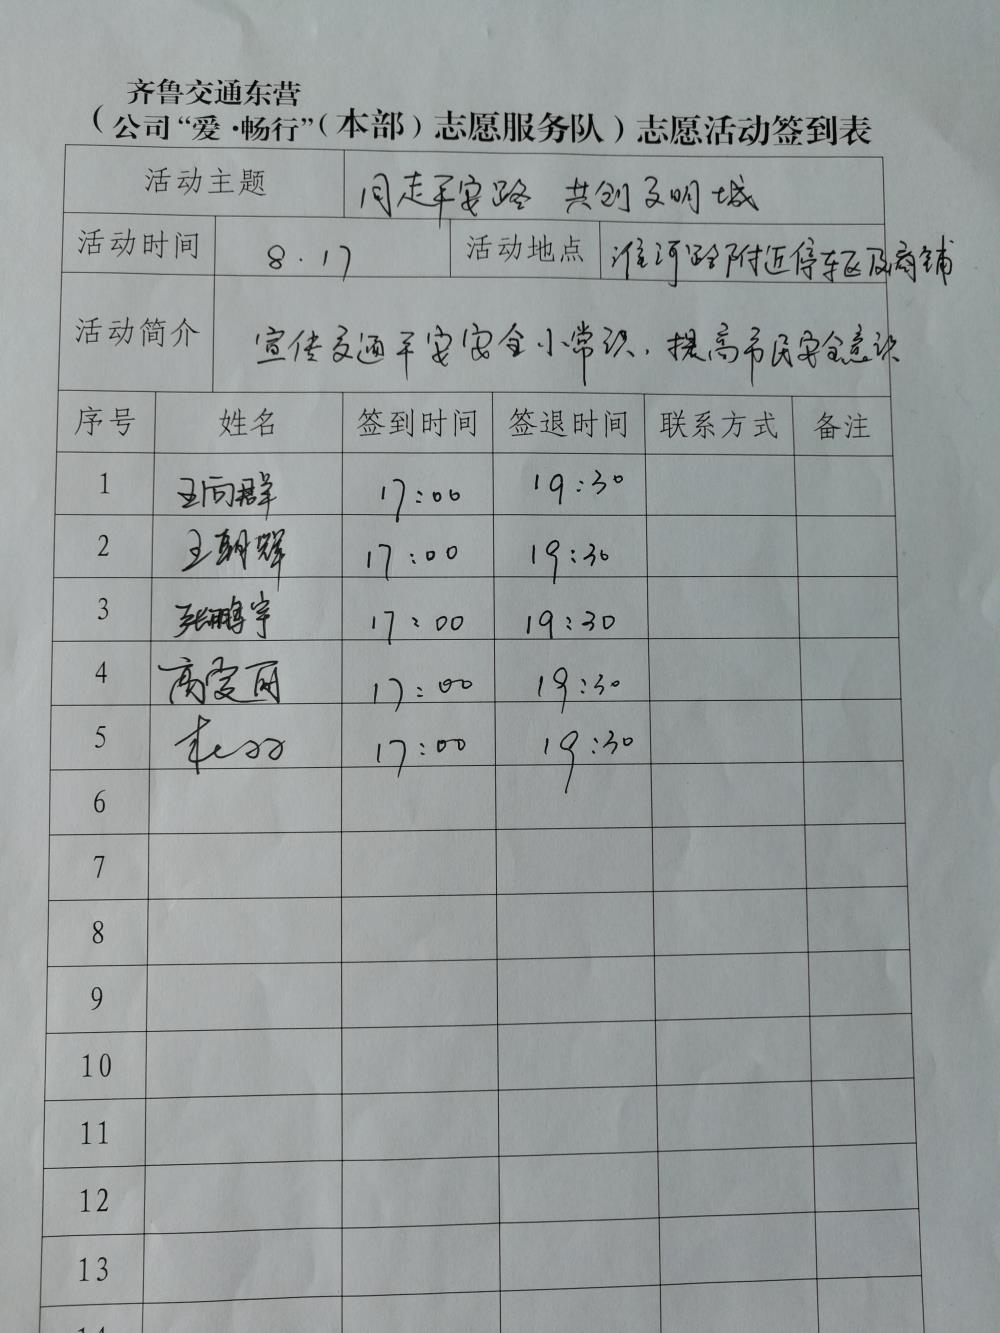 齐鲁交通东营
（公司“爱·畅行”（本部）志愿服务队）志愿活动签到表
活动主题 同走平安路 共创文明城
活动时间 8.17 活动地点 淮河路附近停车区及商铺
活动简介 宣传交通平安安全小常识，提高市民安全意识
序号 姓名 签到时间 签退时间 联系方式 备注
1 王向群 17:00 19:30
2 王朝辉 17:00 19:30
3 张鹏宇 17:00 19:30
4 高爱丽 17:00 19:30
5 17:00 19:30
6
7
8
9
10
11
12
13
14